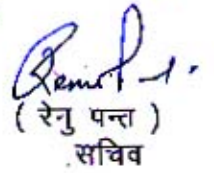 ( रेनु पन्त )
सचिव